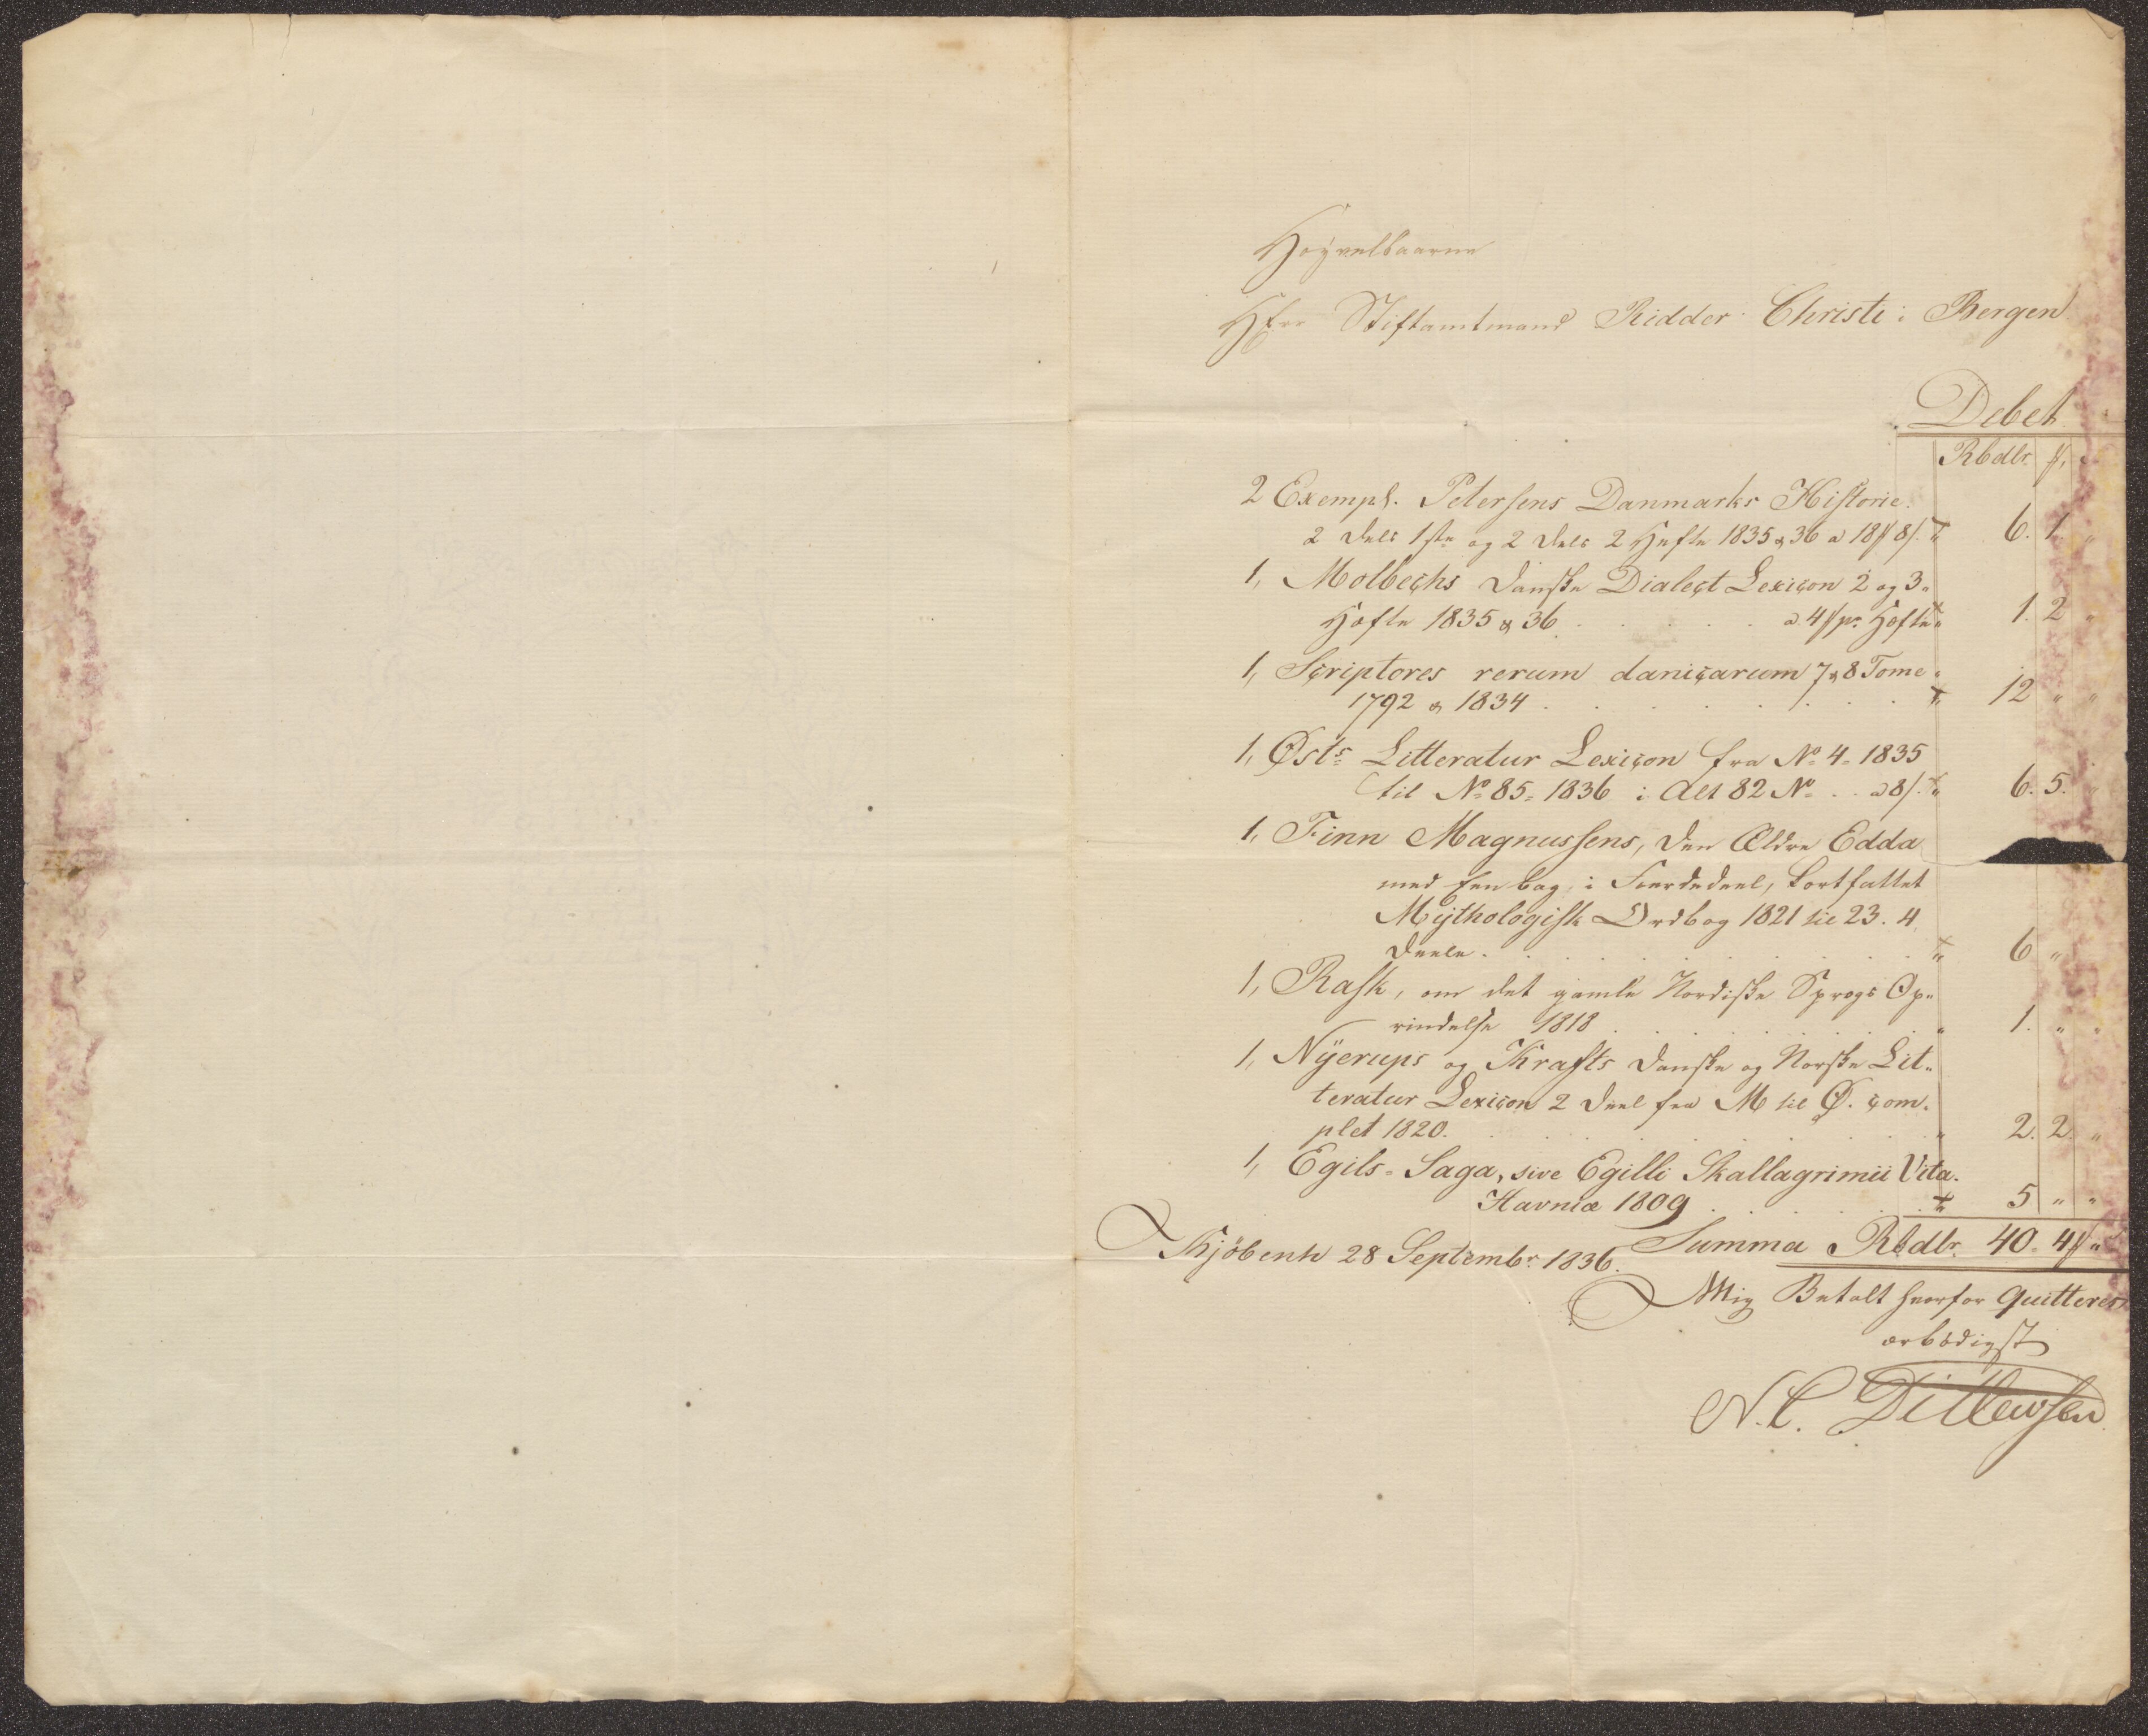 Høyvelbaarne
Herr Stiftamtmand Ridder Christi i Bergen
Debet
Rbdlr. ꟗ,
2 Exempl. Petersens Danmarks Historie.
2 Dels 1ste og 2 Dels 2 Hefte 1835 & 36 a 18ꟗ 8ꟗ. " 6. 1. "
1, Molbechs Danske Dialect Lexicon 2 og 3"
Hefte 1835 & 36 . . . . . a 4ꟗ pr Hefte " 1. 2 "
1, Scriptores rerum danicarum 7 & 8 Tome
1792 & 1834 . . . . . . . " 12 " "
1, Østs Litteratur Lexicon fra No 4 1835
til No 85 1836 i Alt 82 No . . a 8ꟗ. " 6. 5. "
1, Finn Magnussens, den Ældre Edda
med hen bag i Fierdedeel, kortfattet
Mythologisk Ordbog 1821 til 23. 4
Deele . . . . . . . . . . " 6 "
1, Rask, om det gamle Nordiske Sprogs Op"
rindelse 1818 . . . . . . . . " 1. " "
1, Nyerups og Krafts Danske og Norske Lit"
teratur Lexicon 2 Deel fra M til Ø. com"
plet 1820. . . . . . . . . " 2. 2. "
1, Egils=Saga, sive Egilli Skallagrimii Vita.
Havniæ 1809 . . . . . " 5 " "
Kjöbenh 28 Septembr. 1836. Summa Rbdlr. 40. 4ꟗ "
Mig Betalt hvorfor quitteres
ærbødigst
N. C. Ditlewsen